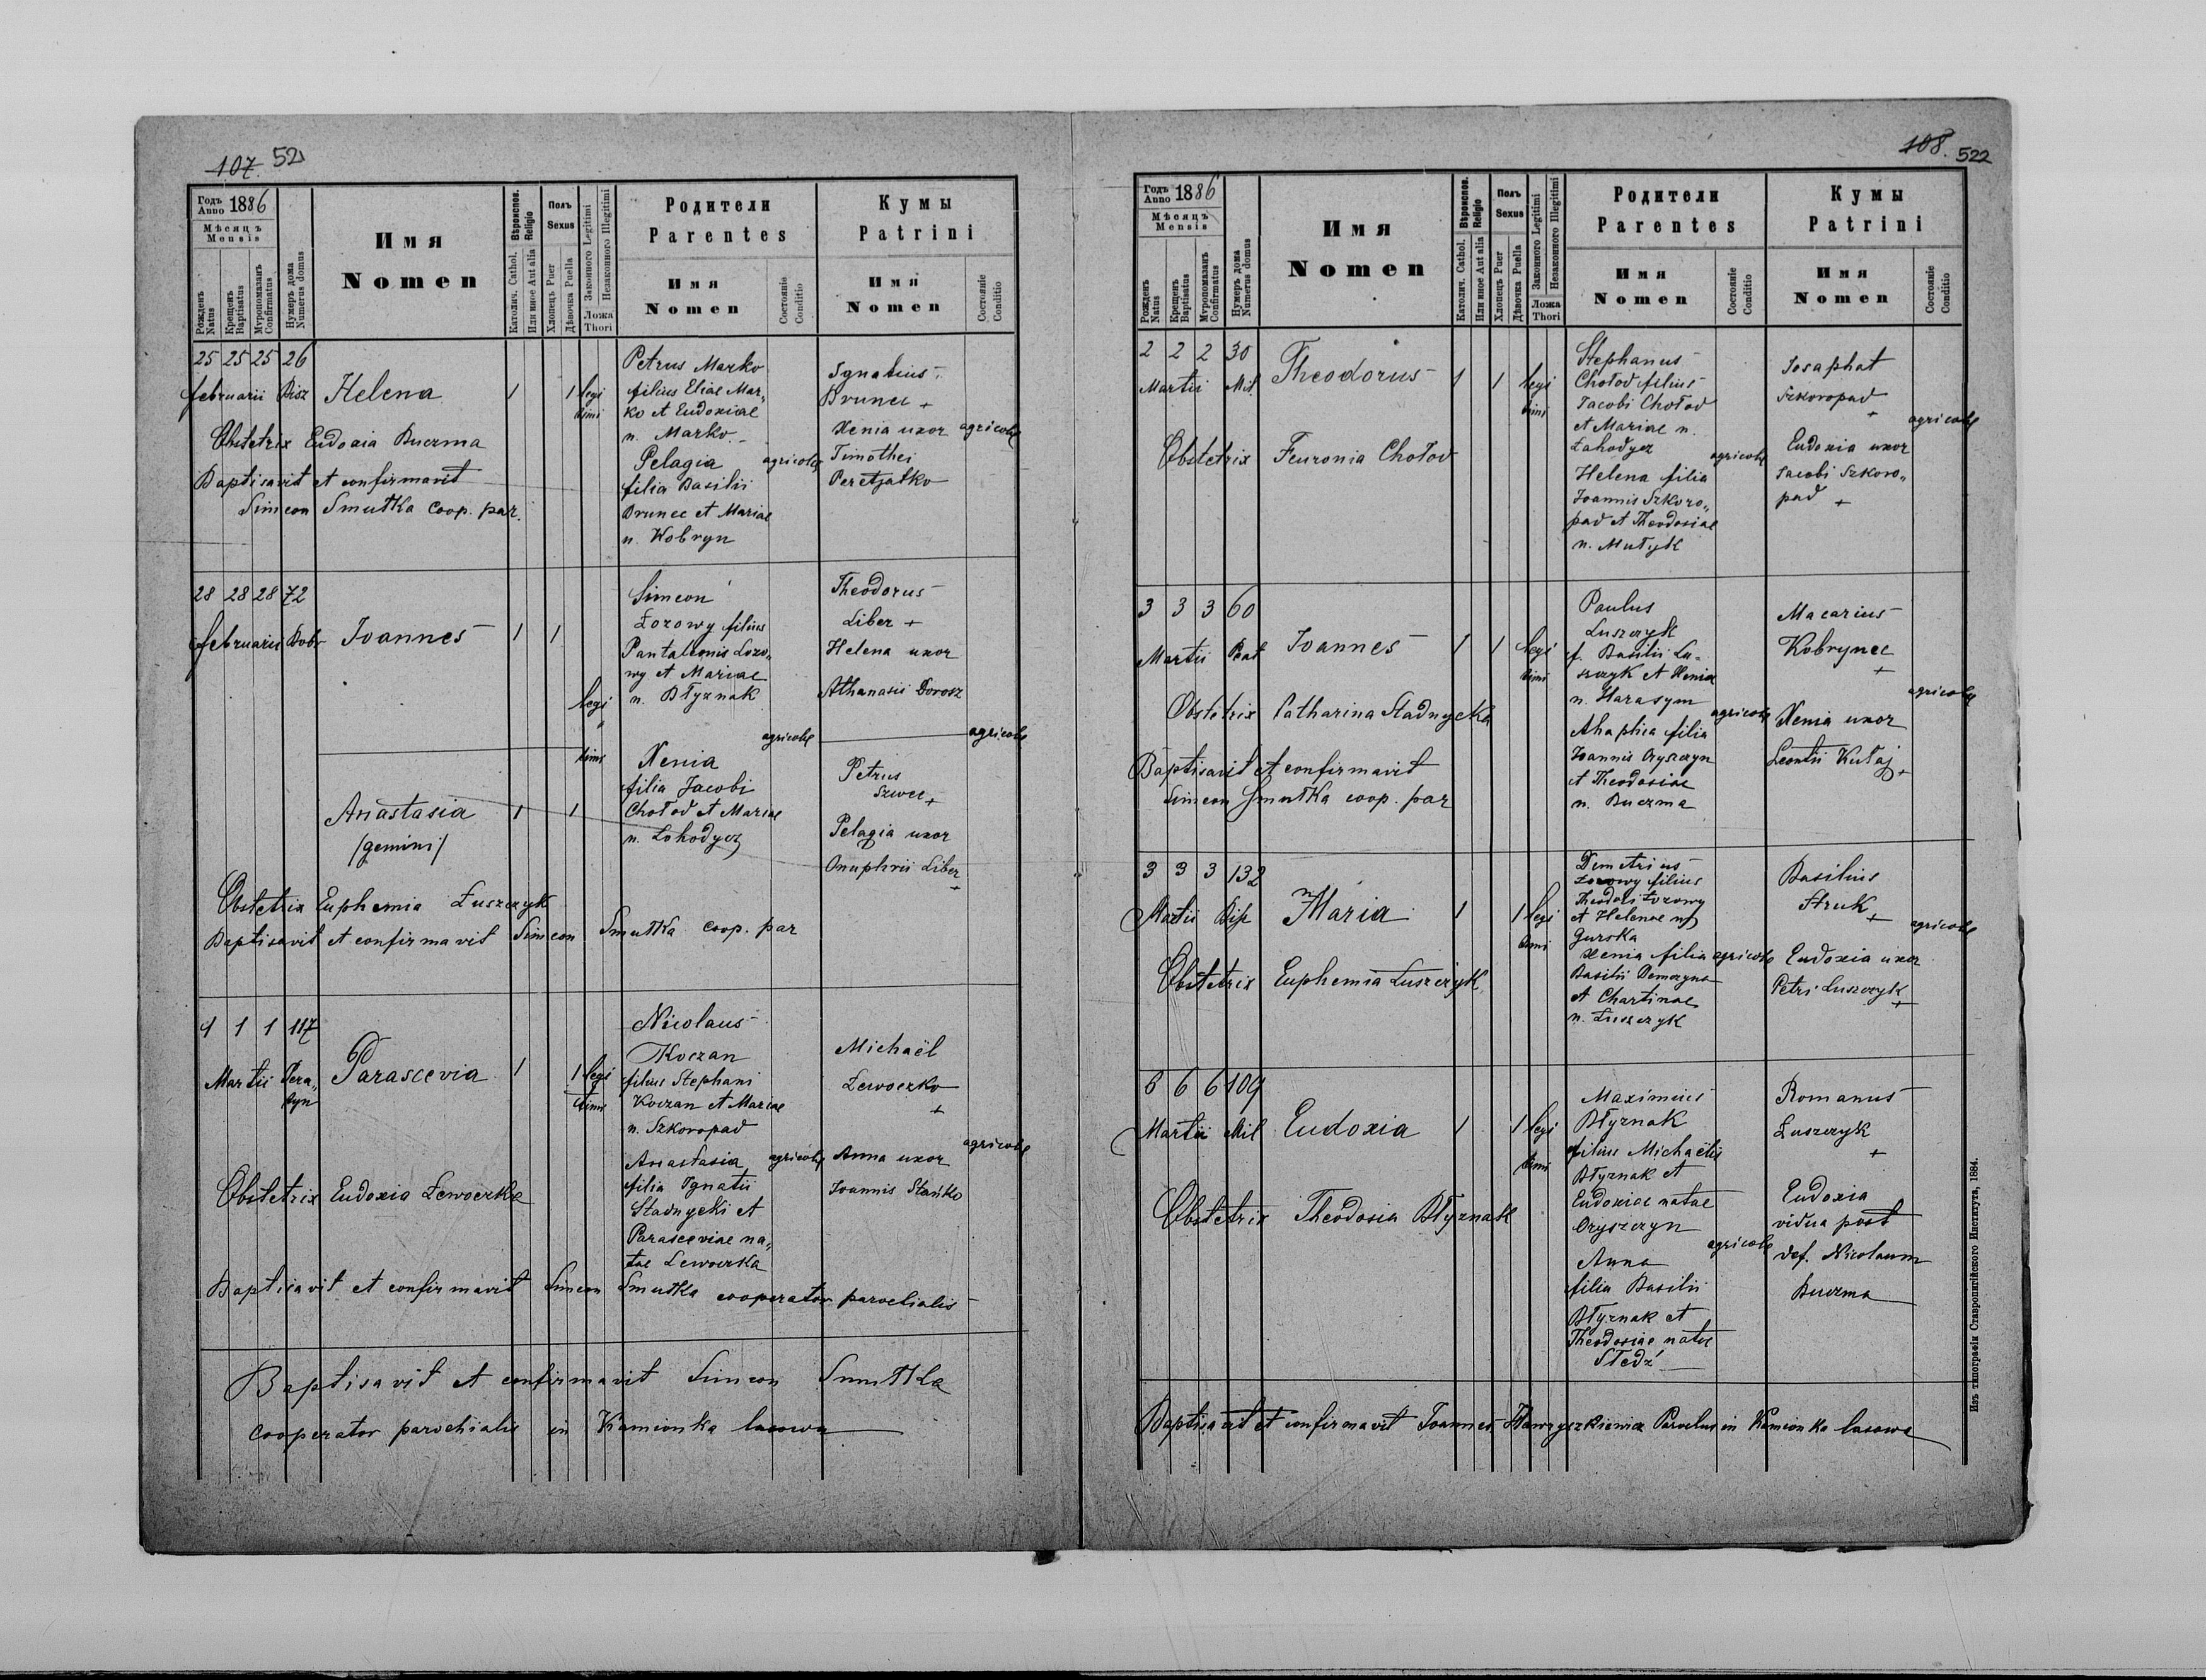 107. 521
Годъ Anno 1886
Мѣсяцъ
Mensis
Рожденъ Natus
Крещенъ Baptisatus
Мѵропомазанъ Confirmatus
Нумеръ дома Numerus domus
Имя
Nomen
Вѣроиспов. Religio
Католич. Cathol.
Или иное Aut alia
Полъ
Sexus
Хлопецъ Puer
Дѣвочка Puella
Законного Legitimi
Незаконного Illegitimi
Ложа
Thori
Родители
Parentes
Имя
Nomen
Состоянiе Conditio
Кумы
Patrini
Имя
Nomen
Состоянiе Conditio
25 25 25 26
februarii Bisz
Helena
1 1 legi
timi
Petrus Marko
filius Eliae Mar„
ko et Eudoxiae
n. Marko.
Pelagia agricolae
filia Basilii
Brunec et Mariae
n. Kobryn
Ignatius
Brunec +
Xenia uxor agricolae
Timothei
Peretjatko
Obstetrix Eudoxia Buczma
Baptisavit et confirmavit
Simeon Smutka coop. par.
28 28 28 72
februarii Bobr
Joannes
1 1
legi
"
timi
Simeon
Łozowy filius
Pantaleonis Lozo„
wy et Mariae
n. Błyznak
agricolae
Xenia
filia Jacobi
Chołod et Mariae
n. Lohodycz
Theodorus
Liber +
Helena uxor
Athanasii Dorosz
agricolae
Petrus
Szwec +
Pelagia uxor
Onuphrii Liber
+
Anastasia 1 1
/gemini/
Obstetrix Euphemia Łuszczyk
Baptisavit et confirmavit Simeon Smutka coop. par
1 1 1 117
Martii Pera„
tyn
Parascevia
1 1 legi
timi
Nicolaus
Koczan
filius Stephani
Koczan et Mariae
n. Szkoropad
Anastasia agricolae
filia Ignatii
Stadnycki et
Parasceviae na„
tae Lewoczka
Michaël
Lewoczko
+
agricolae
Anna uxor
Joannis Stańko
Obstetrix Eudoxia Lewoczka
Baptisavit et confirmavit Simeon Smutka cooperator parochialis
Baptisavit et confirmavit Simeon Smutka
cooperator parochialis in Kamionka lasowa
108. 522
Годъ Anno 1886
Мѣсяцъ
Mensis
Рожденъ Natus
Крещенъ Baptisatus
Мѵропомазанъ Confirmatus
Нумеръ дома Numerus domus
Имя
Nomen
Вѣроиспов. Religio
Католич. Cathol.
Или иное Aut alia
Полъ
Sexus
Хлопецъ Puer
Дѣвочка Puella
Законного Legitimi
Незаконного Illegitimi
Ложа
Thori
Родители
Parentes
Имя
Nomen
Состоянiе Conditio
Кумы
Patrini
Имя
Nomen
Состоянiе Conditio
2 2 2 30
Martii Mil
Theodorus
1 1 legi
timi
Stephanus
Chołod filius
Jacobi Chołod
et Mariae n.
Łahodycz agricolae
Helena filia
Joannis Szkoro„
pad et Theodosiae
n. Mułyk
Josaphat
Szkoropad
+
agricolae
Eudoxia uxor
Jacobi Szkoro„
pad +
Obstetrix Feuronia Chołod
3 3 3 60
Martii
Joannes
1 1 legi
timi
Paulus
Luszczyk
f. Basilii Lu-
szczyk et Xenia
n. Harasym
agricolae
Ahaphia filia
Joannis Oryszczyn
et Theodosiae
n. Buczma
Macarius
Kobrynec
+
agricolae
Xenia uxor
Leontii Kutaj
+
Obstetrix Catharina Stadnycka
Baptisavit et confirmavit
Simeon Smutka coop. par
3 3 3 132
Martii
Maria
1 1 legi
timi
Demetrius
Lozowy filius
Lozowy
et Helenae n.
Gurska
Xenia filia agricolae
Basilii Demczyna
et Chartinae
n. Luszczyk
Basilius
Struk
+
agricolae
Eudoxia uxor
Petri Luszczyk
+
Obstetrix Euphemia Luszczyk
6 6 6 109
Martii Mil
Eudoxia
1 1 legi
timi
Maximus
Błyznak
filius Michaëlis
Błyznak et
Eudoxiae natae
Oryszczyn
agricolae
Anna
filia Basilii
Błyznak et
Theodosiae natae
Sledź
Romanus
Łuszczyk
+
Eudoxia
vidua post
def. Nicolaum
Buczma
Obstetrix Theodosia Błyznak
Baptisavit et confirmavit Joannes Hawryszkiewicz Parochus in Kamionka lasowa
Изъ типографiи Ставропигiйского Института, 1884.